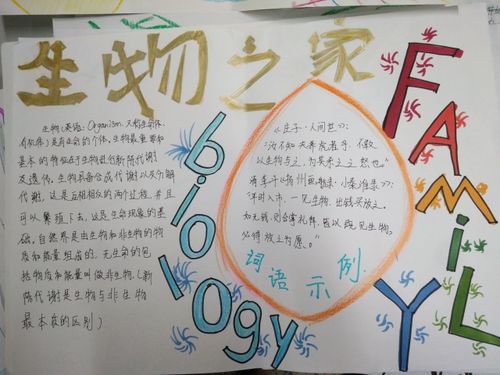 生物之家
FAMiLY
biology
生物(英语:Organism,又称生命体、
有机体)是有命的个体。生物最重要和
基本的特征在于生物进行新陈代谢
及遗传。生物具备合成代谢以及分解
代谢,这是互相相反的两个过程,并且
可以繁殖下去,这是生命现象的基
础。自然界是由生物和非生物的物
质和能量组成的。无生命的包
括物质和能量叫做非生物。(新
陈代谢是生物与非生物
最本质的区别)
《庄子·人间世》:
"汝不知夫养虎者乎,不敢
以生物与之,为其杀之之怒也。"
清李斗《扬州画舫录·小秦淮录》:
"平时入市,一见生物,出钱买放之。
如无钱,则合掌礼拜,誓以既见生物,
必特放之为愿。"
词语示例